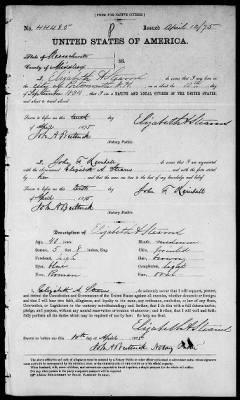 [FORM FOR NATIVE CITIZEN.]
No. 44485
Issued April 12/75
UNITED STATES OF AMERICA.
State of Massachusetts
County of Middlesex } ss.
I, Elizabeth H Stearns do swear that I was born in the
city of Portsmouth N.H. on or about the
September 1834; that I am a NATIVE AND LOYAL CITIZEN OF THE UNITED STATES,
and about to travel abroad.
Sworn to before me, this tenth
of April 1875
Elizabeth H Stearns
John A Buttrick
(Notary Public.)
I, John F. Kimball do swear that I am acquainted
with the above-named Elizabeth H Stearns and with the facts above stated
by her and that the same are true to the best of my knowledge and belief.
Sworn to before me, this tenth
of April 1875
John F Kimball
John A Buttrick
(Notary Public.)
Description of Elizabeth H Stearns
Age: 40 years.
Mouth: medium
Stature: 5 feet 8 inches, Eng.
Chin:
Forehead: high
Hair: brown
Eyes: blue
Complexion: light
Nose: Roman
Face: oval
I, Elizabeth H Stearns do solemnly swear that I will support, protect,
and defend the Constitution and Government of the United States against all enemies, whether domestic or foreign;
and that I will bear true faith, allegiance, and loyalty to the same, any ordinance, resolution, or law of any State,
Convention, or Legislature to the contrary notwithstanding; and further, that I do this with a full determination,
pledge, and purpose, without any mental reservation or evasion whatsoever; and further, that I will
well and faithfully perform all the duties which may be required of me by law: So help me God.
Elizabeth H Stearns
Sworn to before me, this 10th April 1875
John A Buttrick Notary Public